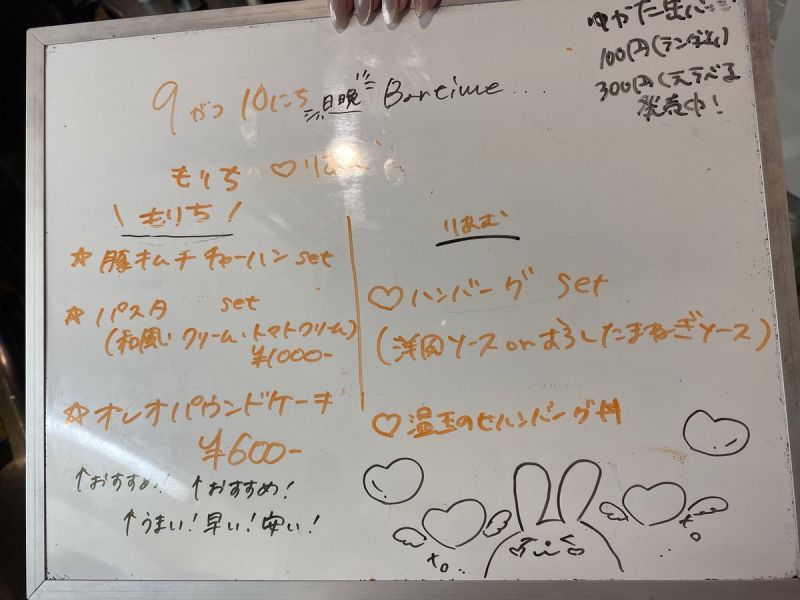 ゆかた缶バッチ
100円(ランダム)
300円(えらべる
発売中!
9がつ10にち 日晩 Bartime....
もりち ♡りおむ
\ もりち /
☆ 豚キムチチャーハン set
☆ パスタ set
(和風、クリーム、トマトクリーム)
¥1000-
☆ オレオパウンドケーキ
¥600-
↑おすすめ! ↑おすすめ!
↑うまい!早い!安い!
りおむ
♡ ハンバーグ set
(洋風ソース or おろしたまねぎソース)
♡ 温玉のせハンバーグ丼